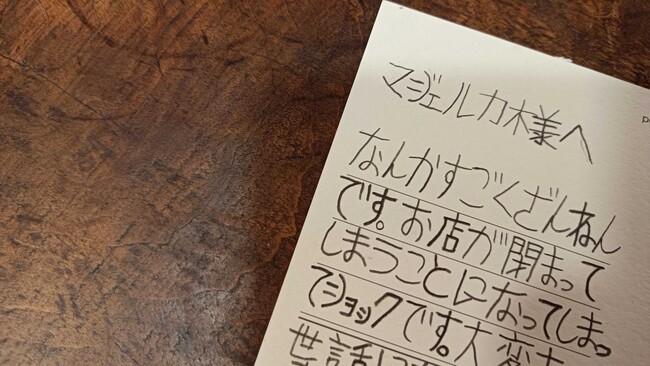 マジェルカ様へ
なんかすごくざんねん
です。お店が閉まって
しまうことになってしまっ
てショックです。大変お
世話に